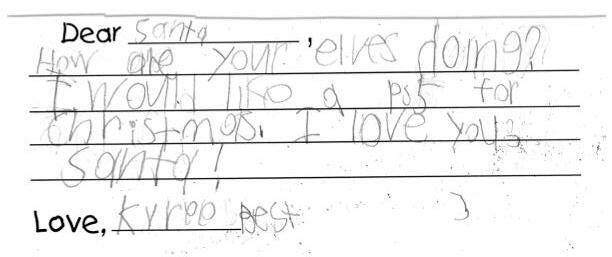 Dear Santa,
How are your elves doing?
I would like a ps5 for
christmas. I love you
santa!
Love, Kyree Best